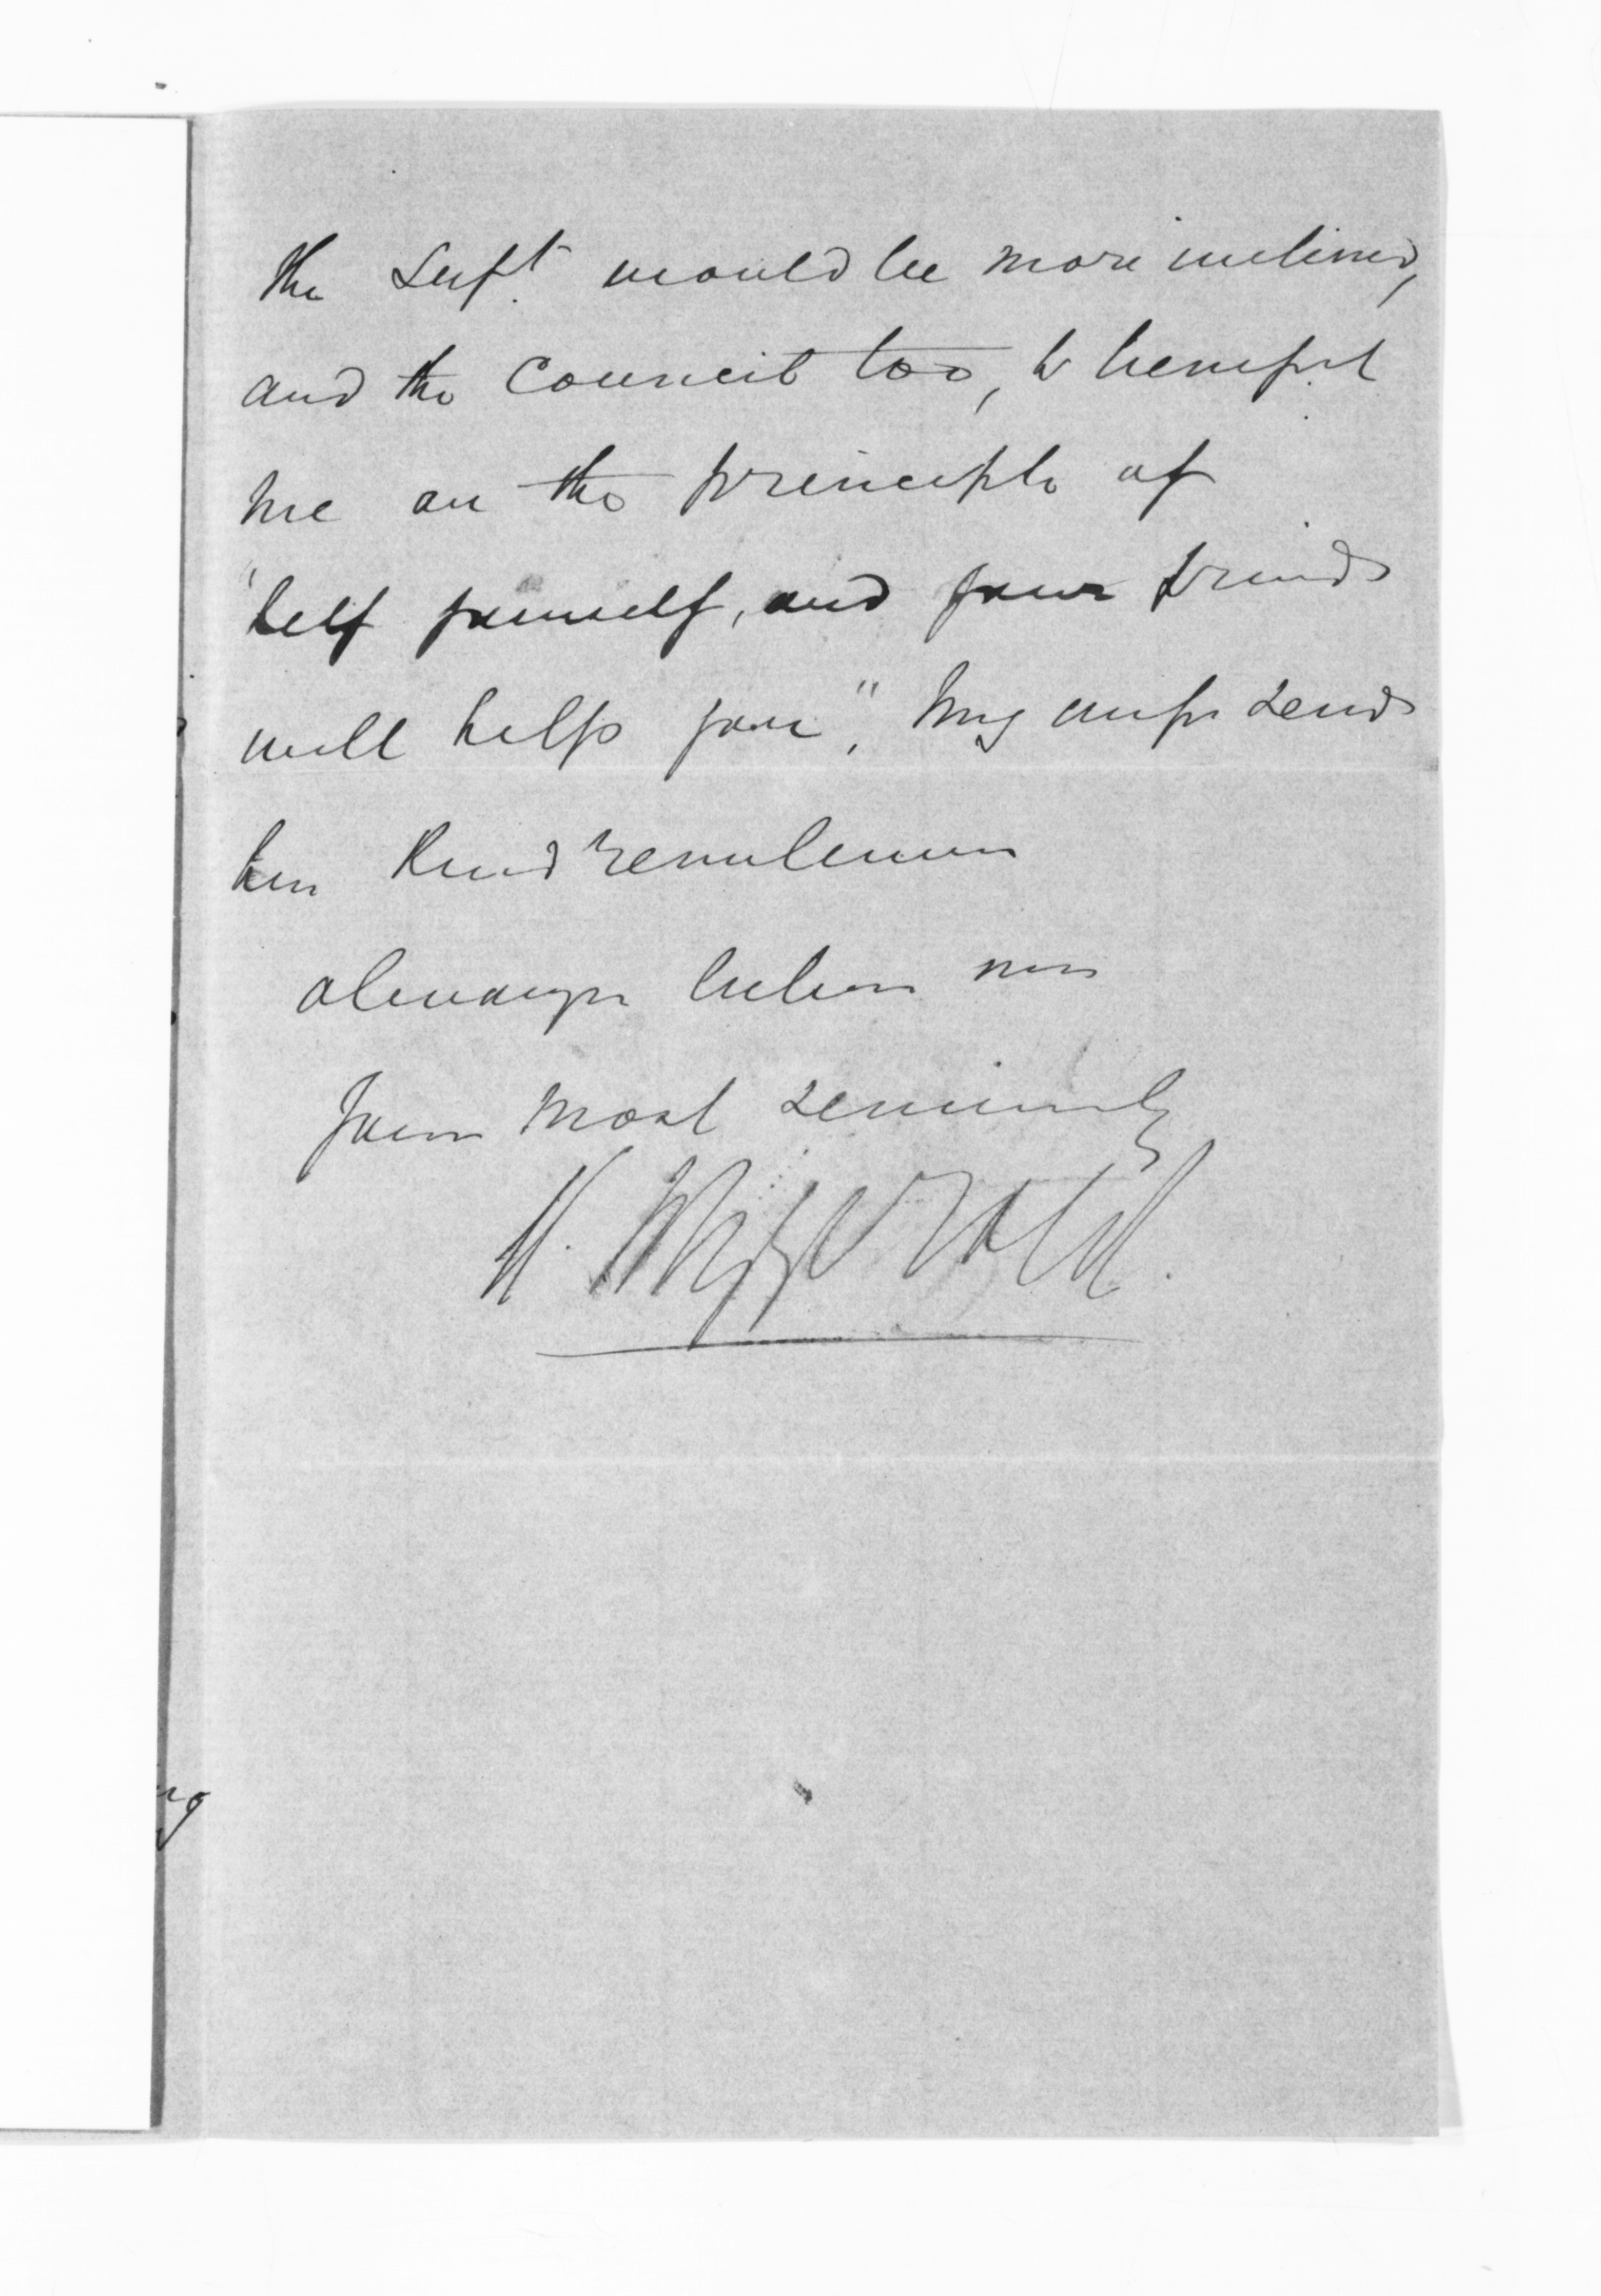 the Supt. would be more inclined,
and the Council too, to benefit
me on the principle of
"help yourself, and your friends
will help you", My wife sends
her kind remembrances
always believe me
Yours most sincerely
H. Fitzgerald.